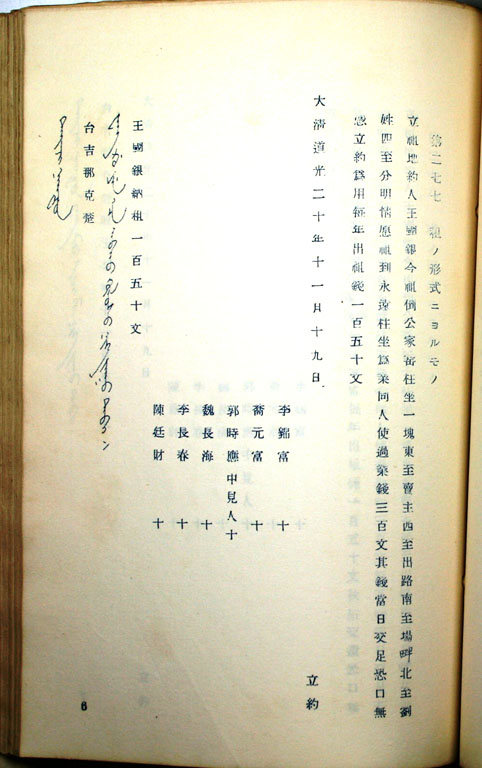 第二七七　租ノ形式ニヨルモノ
立租地約人王國銀今租倒公家窑柱坐一塊東至賣主西至出路南至場畔北至劉
姓四至分明情愿租到永遠柱坐爲業同人使過業錢三百文其錢當日交足恐口無
憑立約爲用每年出租錢一百五十文
大淸道光二十年十一月十九日
立約
李錦富　十
喬元富　十
郭時應中見人十
魏長海　十
李長春　十
陳廷財　十
王國銀納租一百五十文
台吉那克楚
6